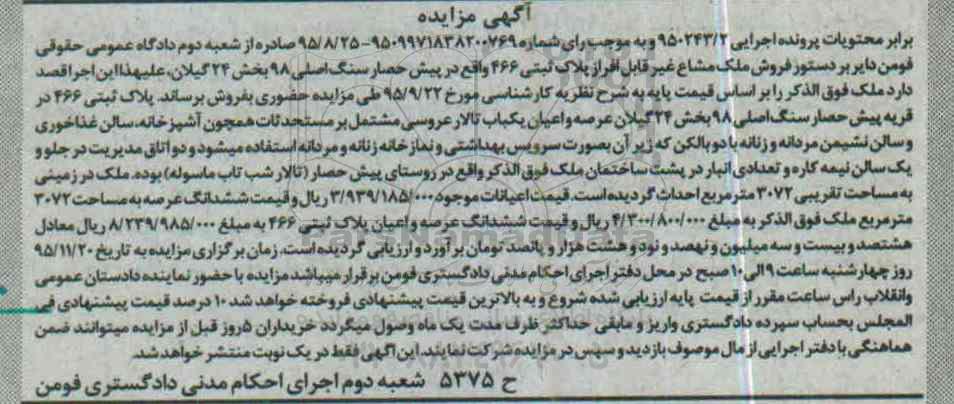 آگهی مزایده
برابر محتویات پرونده اجرایی ۹۵۰۲۴۳/۲ و به موجب رای شماره ۹۵۰۹۹۷۱۸۳۸۲۰۰۷۶۹ - ۹۵/۸/۲۵ صادره از شعبه دوم دادگاه عمومی حقوقی
فومن دایر بر دستور فروش ملک مشاع غیر قابل افراز پلاک ثبتی ۴۶۶ واقع در پیش حصار سنگ اصلی ۹۸ بخش ۲۴ گیلان، علیهذا این اجرا قصد
دارد ملک فوق الذکر را بر اساس قیمت پایه به شرح نظریه کارشناسی مورخ ۹۵/۹/۲۲ طی مزایده حضوری بفروش برساند. پلاک ثبتی ۴۶۶ در
قریه پیش حصار سنگ اصلی ۹۸ بخش ۲۴ گیلان عرصه و اعیان یکباب تالار عروسی مشتمل بر مستحدثات همچون آشپزخانه، سالن غذاخوری
و سالن نشیمن مردانه و زنانه با دو بالکن که زیر آن بصورت سرویس بهداشتی و نماز خانه زنانه و مردانه استفاده میشود و دو اتاق مدیریت در جلو و
یک سالن نیمه کاره و تعدادی انبار در پشت ساختمان ملک فوق الذکر واقع در روستای پیش حصار (تالار شب تاب ماسوله) بوده. ملک در زمینی
به مساحت تقریبی ۳۰۷۲ متر مربع احداث گردیده است. قیمت اعیانات موجود ۳/۹۳۹/۱۸۵/۰۰۰ ریال و قیمت ششدانگ عرصه به مساحت ۳۰۷۲
مترمربع ملک فوق الذکر به مبلغ ۴/۳۰۰/۸۰۰/۰۰۰ ریال و قیمت ششدانگ عرصه و اعیان پلاک ثبتی ۴۶۶ به مبلغ ۸/۲۳۹/۹۸۵/۰۰۰ ریال معادل
هشتصد و بیست و سه میلیون و نهصد و نود و هشت هزار و پانصد تومان برآورد و ارزیابی گردیده است. زمان برگزاری مزایده به تاریخ ۹۵/۱۱/۲۰
روز چهارشنبه ساعت ۹ الی ۱۰ صبح در محل دفتر اجرای احکام مدنی دادگستری فومن برقرار میباشد مزایده با حضور نماینده دادستان عمومی
وانقلاب راس ساعت مقرر از قیمت پایه ارزیابی شده شروع و به بالاترین قیمت پیشنهادی فروخته خواهد شد ۱۰ درصد قیمت پیشنهادی فی
المجلس بحساب سپرده دادگستری واریز و مابقی حداکثر ظرف مدت یک ماه وصول میگردد خریداران ۵ روز قبل از مزایده میتوانند ضمن
هماهنگی با دفتر اجرایی از مال موصوف بازدید و سپس در مزایده شرکت نمایند. این آگهی فقط در یک نوبت منتشر خواهد شد.
ح ۵۳۷۵ شعبه دوم اجرای احکام مدنی دادگستری فومن